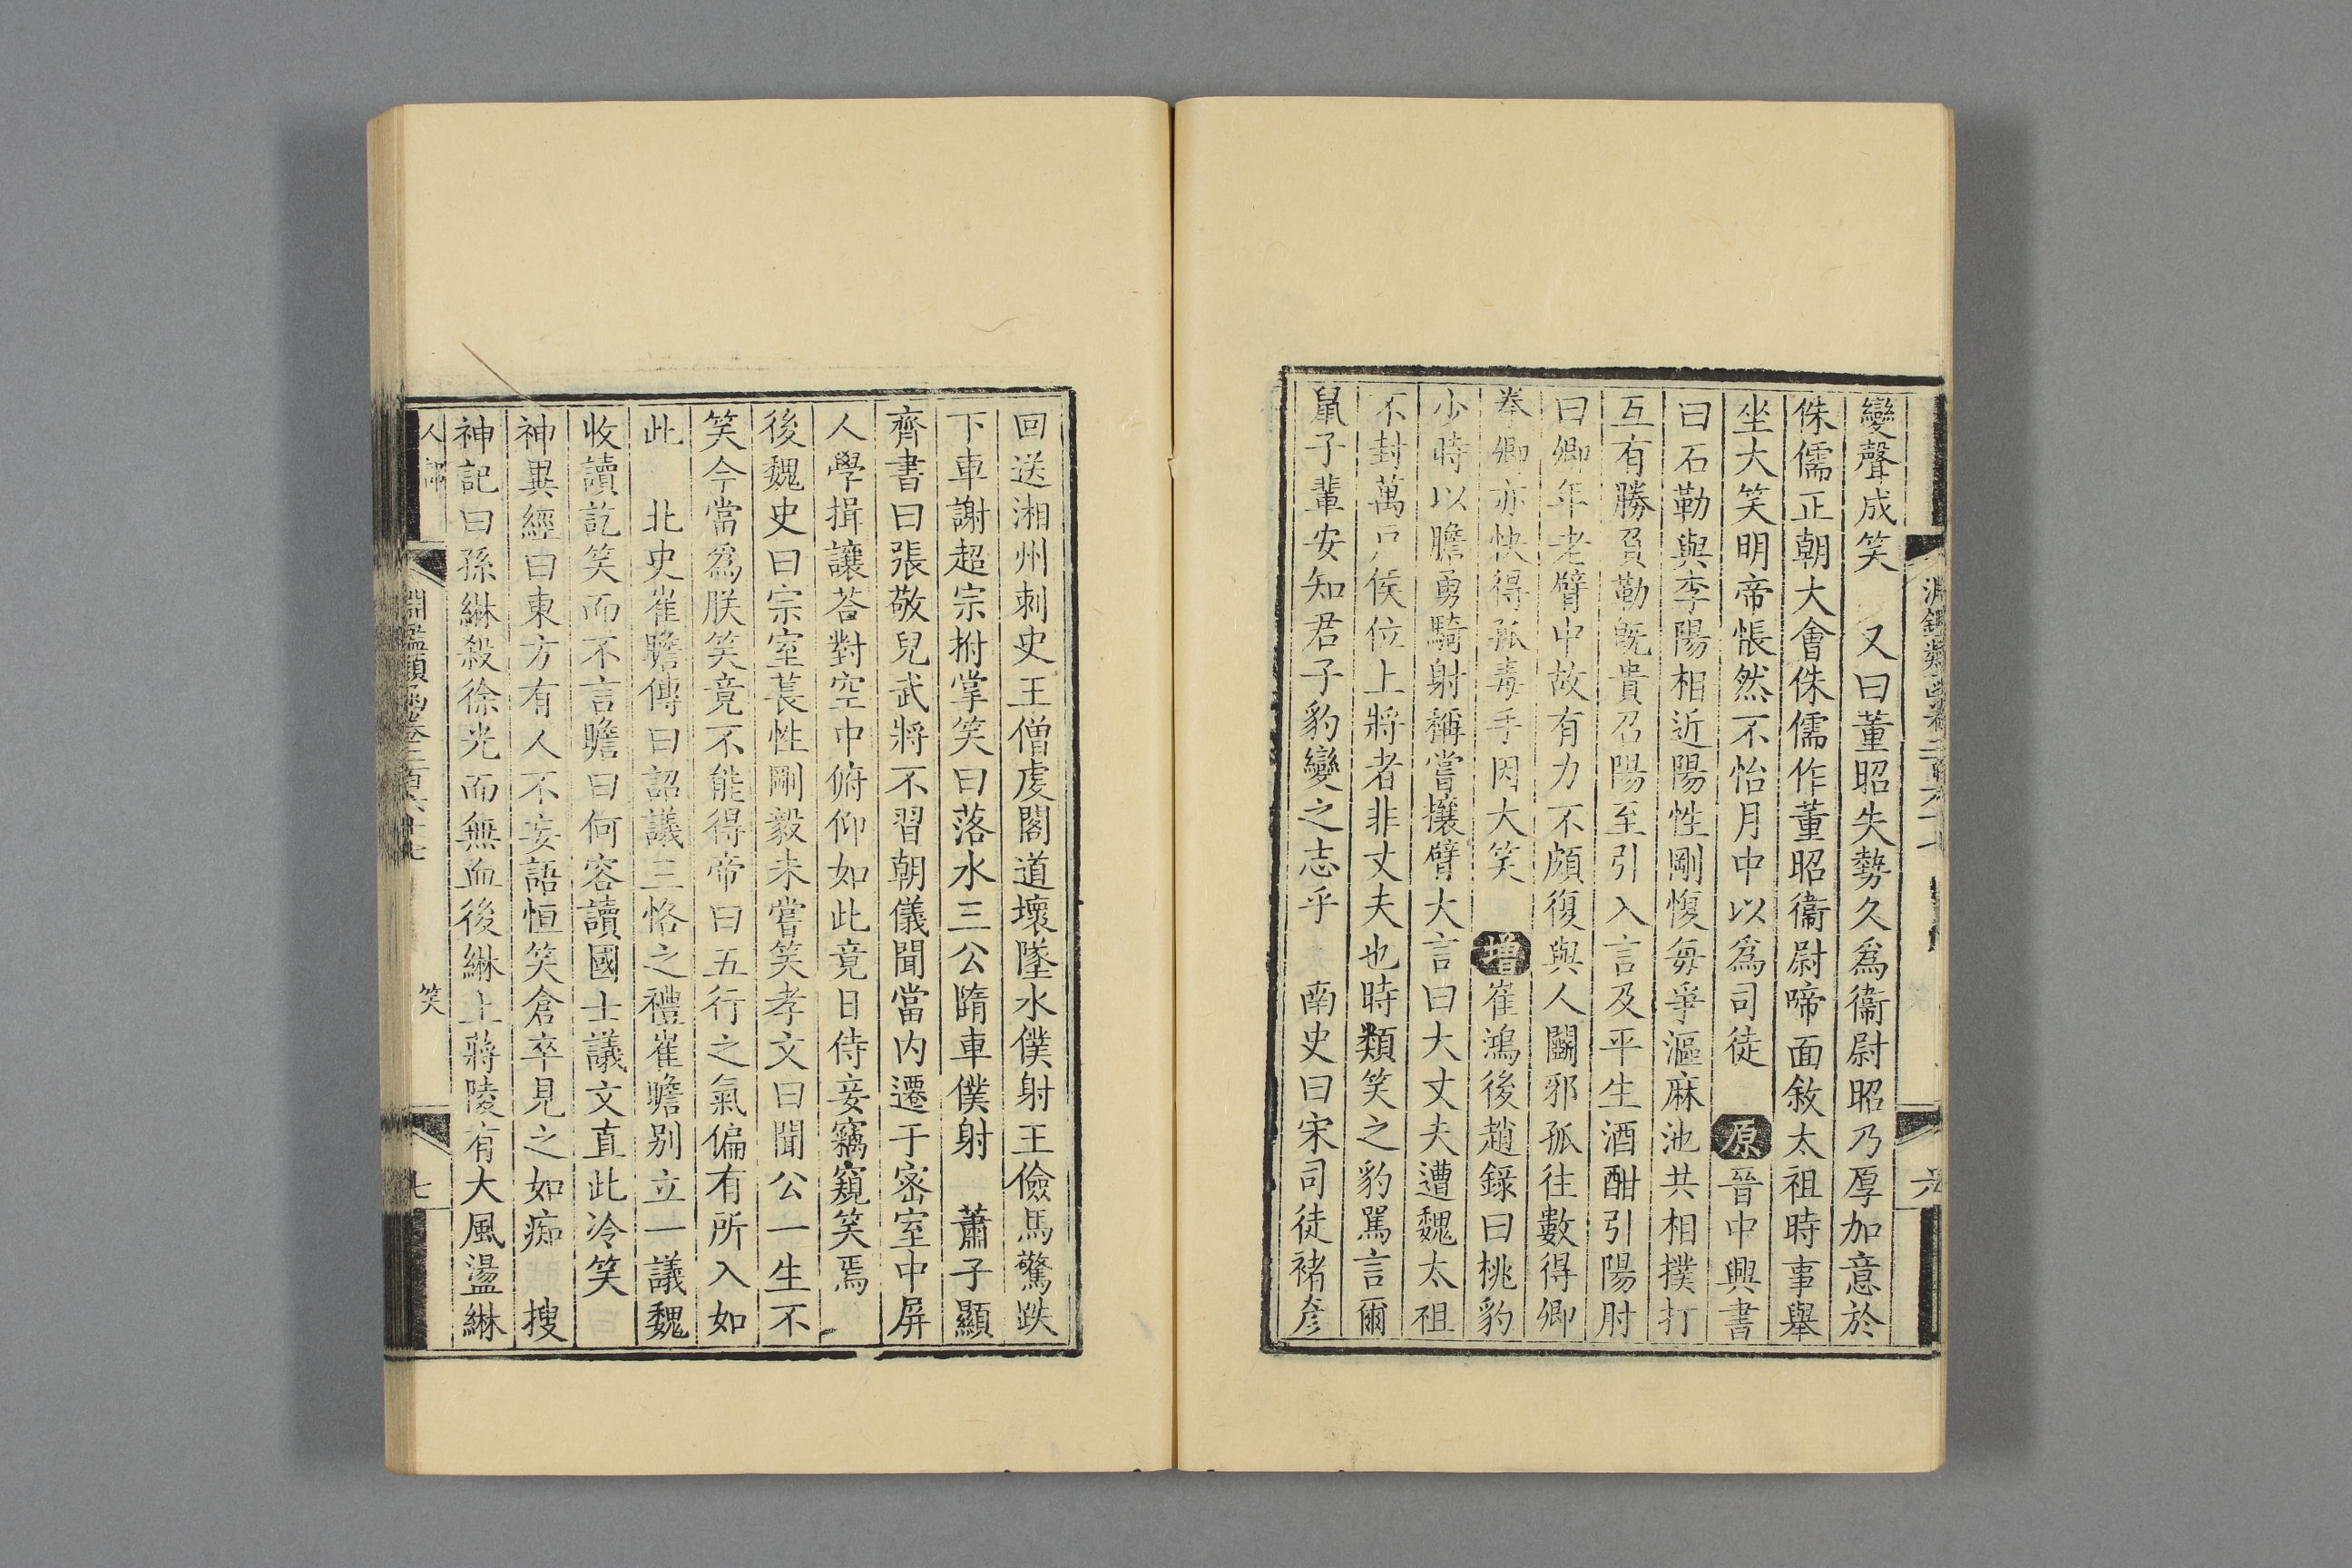 變聲成笑　又曰董昭失勢久爲衞尉昭乃厚加意於
侏儒正朝大會侏儒作董昭衞尉啼面敘太祖時事舉
坐大笑明帝悵然不怡月中以爲司徒　原晉中興書
曰石勒與李陽相近陽性剛愎每爭漚麻池共相撲打
互有勝負勒既貴召陽至引入言及平生酒酣引陽肘
曰卿年老臂中故有力不頗復與人鬬邪孤往數得卿
拳卿亦快得孤毒手因大笑　增崔鴻後趙錄曰桃豹
少時以膽勇騎射稱嘗攘臂大言曰大丈夫遭魏太祖
不封萬戸侯位上將者非丈夫也時類笑之豹罵言爾
鼠子輩安知君子豹變之志乎　南史曰宋司徒褚彥
回送湘州刺史王僧虔閣道壞墜水僕射王儉馬驚跌
下車謝超宗拊掌笑曰落水三公隋車僕射　蕭子顯
齊書曰張敬兒武將不習朝儀聞當內遷于密室中屏
人學揖讓荅對空中俯仰如此竟日侍妾竊窺笑焉
後魏史曰宗室萇性剛毅未嘗笑孝文曰聞公一生不
笑今當爲朕笑竟不能得帝曰五行之氣偏有所入如
此　北史崔瞻傳曰詔議三恪之禮崔瞻别立一議魏
收讀訖笑而不言瞻曰何容讀國士議文直此冷笑
神異經曰東方有人不妄語恒笑倉卒見之如痴　搜
神記曰孫綝殺徐光而無血後綝上蔣陵有大風盪綝
淵鑑類函卷二百六十七
笑
七
六